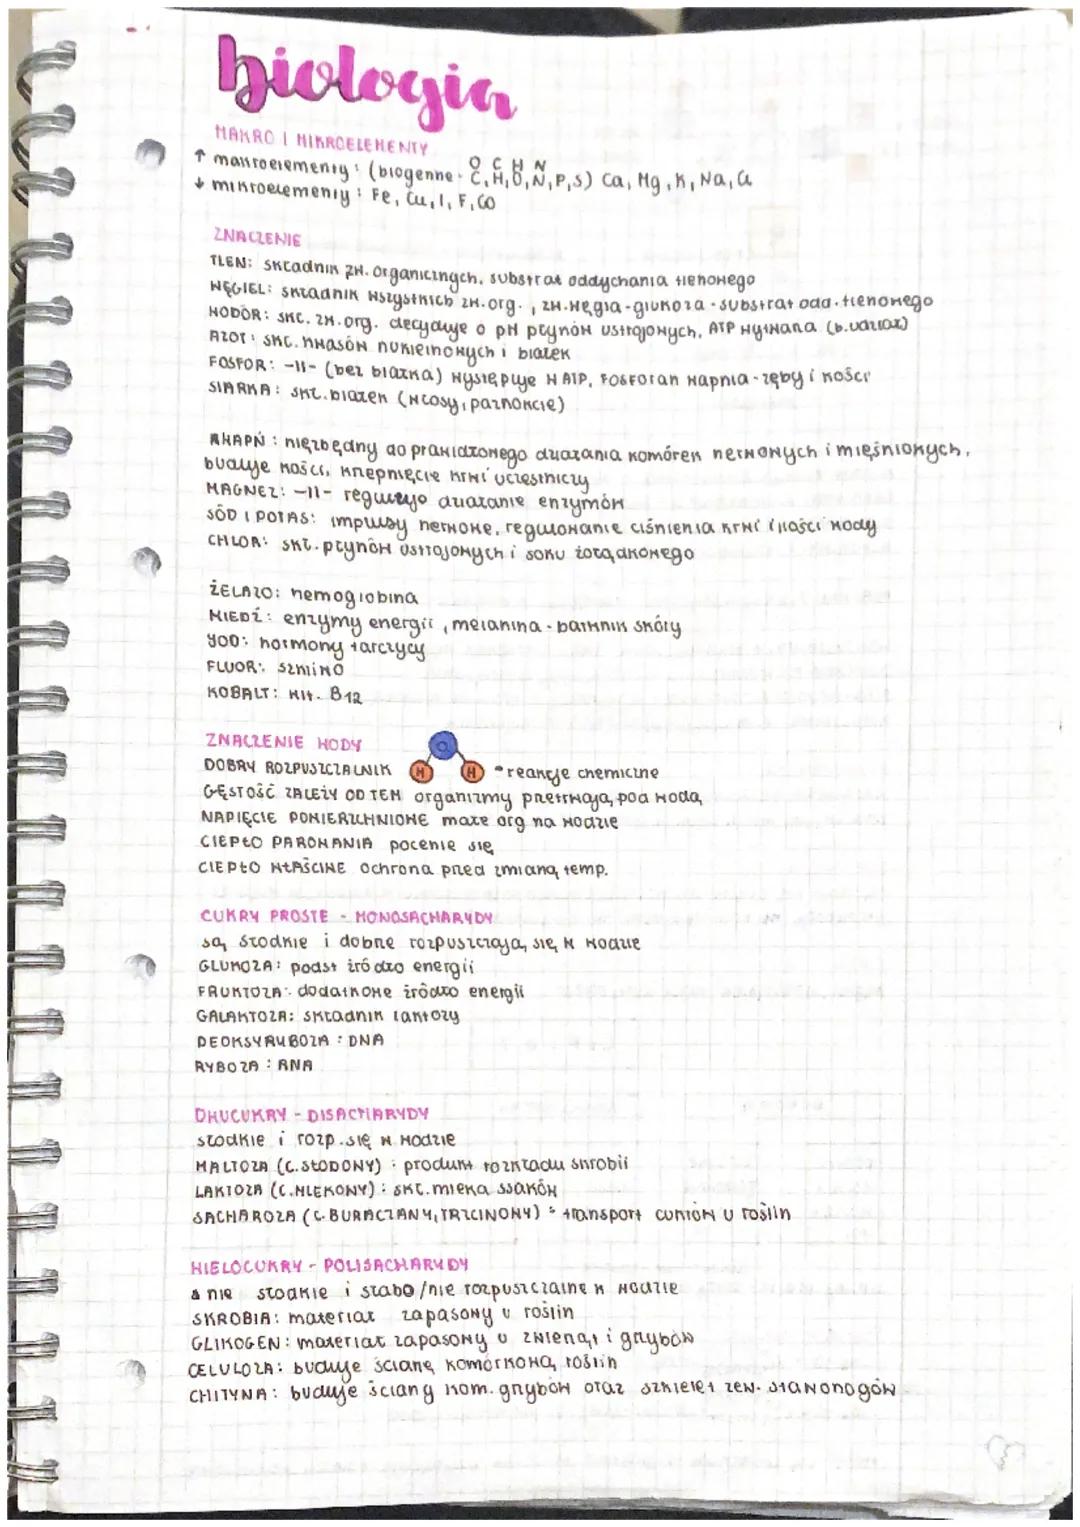 biologia
MAKRO I MIKROELEMENTY
O C H N
↑ makroelementy: (biogenne - C,H,O,N,P,S) Ca, Mg, K, Na, Cl
↓ mikroelementy: Fe, Cu, I, F, Co
ZNACZENIE
TLEN: składnik zw. organicznych, substrat oddychania tlenowego
WĘGIEL: składnik wszystkich zw.org., zw.węgla-glukoza-substrat odd.tlenowego
WODÓR: skł. zw.org. decyduje o pH płynów ustrojowych, ATP wytwana (b.udział)
AZOT: skł. kwasów nukleinowych i białek
FOSFOR: -||- (bez białka) występuje w ATP, fosforan wapnia-zęby i kości
SIARKA: skł.białek (włosy, paznokcie)
WAPŃ: niezbędny do prawidłowego działania komórek nerwowych i mięśniowych,
buduje kości, krzepnięcie krwi uczestniczy
MAGNEZ: -||- reguluje działanie enzymów
SÓD I POTAS: impulsy nerwowe, regulowanie ciśnienia krwi i ilości wody
CHLOR: skł.płynów ustrojowych i soku żołądkowego
ŻELAZO: hemoglobina
MIEDŹ: enzymy energii, melanina-barwnik skóry
JOD: hormony tarczycy
FLUOR: szkliwo
KOBALT: wit. B12
ZNACZENIE WODY
O
DOBRY ROZPUSZCZALNIK H H reakcje chemiczne
GĘSTOŚĆ ZALEŻY OD TEM organizmy przetrwają pod wodą
NAPIĘCIE POWIERZCHNIOWE małe org na wodzie
CIEPŁO PAROWANIA pocenie się
CIEPŁO WŁAŚCIWE ochrona przed zmianą temp.
CUKRY PROSTE - MONOSACHARYDY
są słodkie i dobrze rozpuszczają się w wodzie
GLUKOZA: podst źródło energii
FRUKTOZA: dodatkowe źródło energii
GALAKTOZA: składnik laktozy
DEOKSYRYBOZA: DNA
RYBOZA: RNA
DWUCUKRY - DISACHARYDY
słodkie i rozp.się w wodzie
MALTOZA (C.SŁODOWY): produkt rozkładu skrobii
LAKTOZA (C.MLEKOWY): skł.mleka ssaków
SACHAROZA (C.BURACZANY, TRZCINOWY): transport cukrów u roślin
WIELOCUKRY - POLISACHARYDY
nie słodkie i słabo/nie rozpuszczalne w wodzie
SKROBIA: materiał zapasowy u roślin
GLIKOGEN: materiał zapasowy u zwierząt i grzybów
CELULOZA: buduje ścianę komórkową roślin
CHITYNA: buduje ściany kom. grzybów oraz szkielet zew. stawonogów